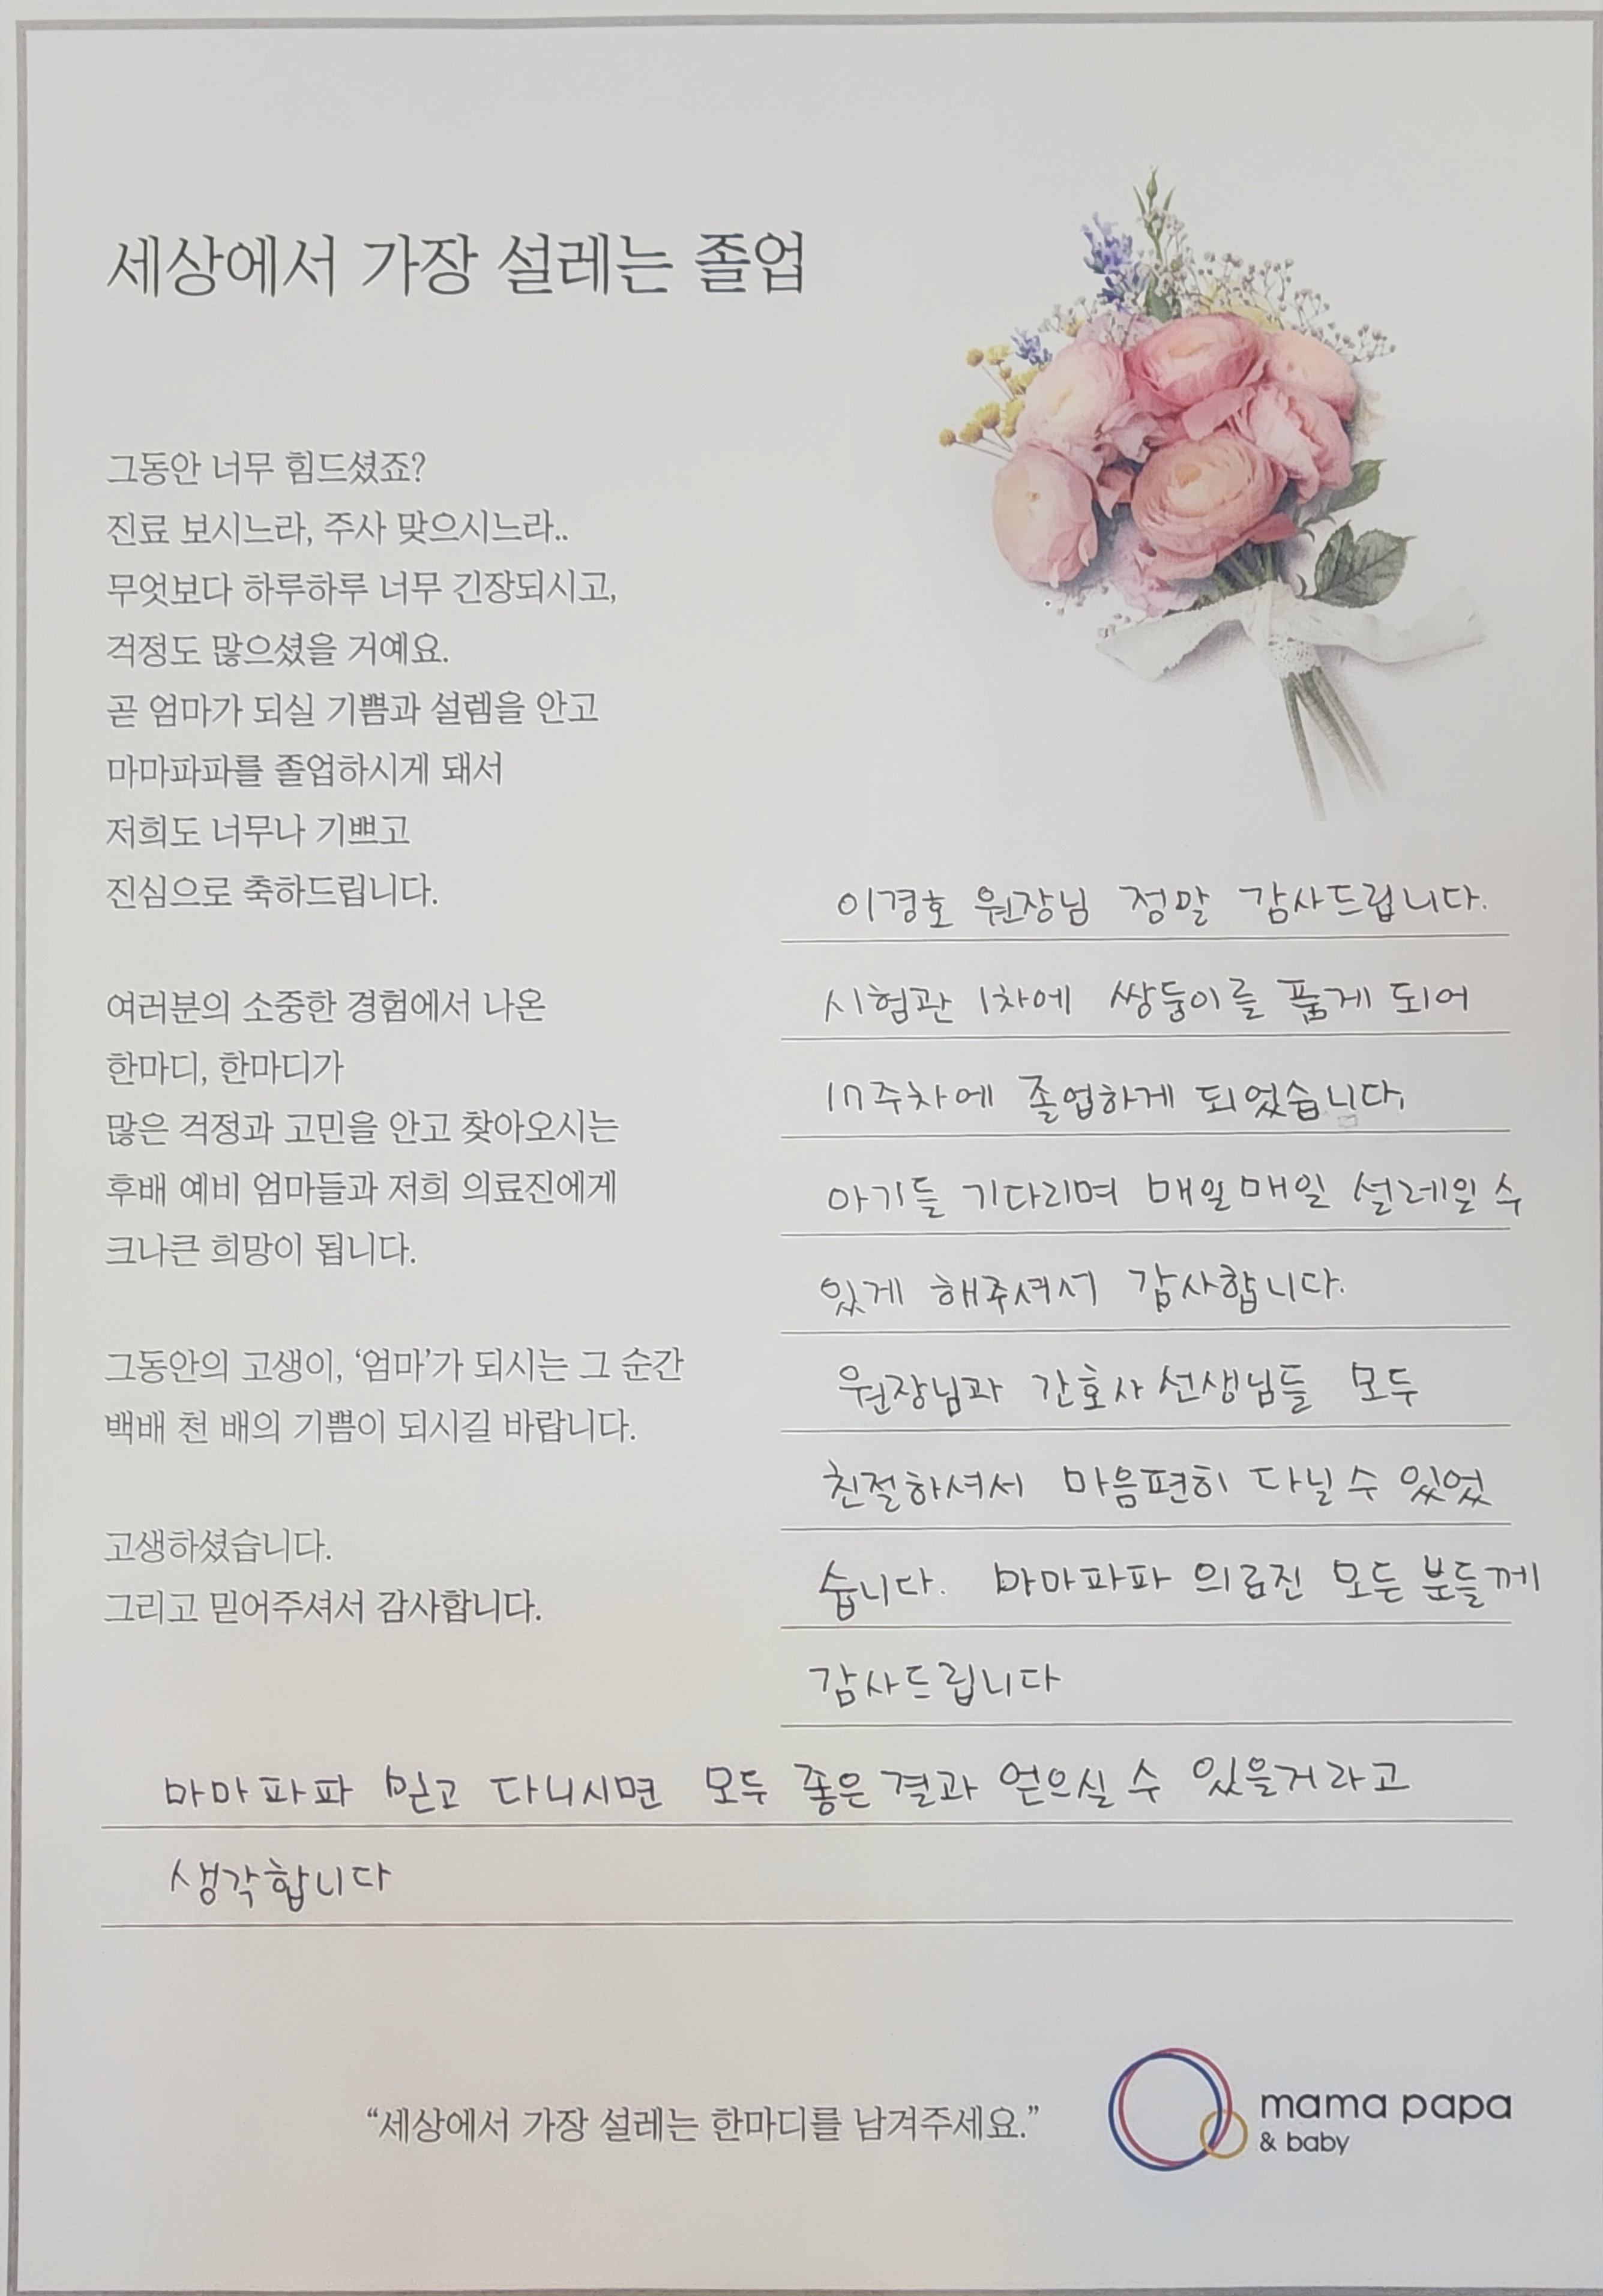 세상에서 가장 설레는 졸업
그동안 너무 힘드셨죠?
진료 보시느라, 주사 맞으시느라..
무엇보다 하루하루 너무 긴장되시고,
걱정도 많으셨을 거예요.
곧 엄마가 되실 기쁨과 설렘을 안고
마마파파를 졸업하시게 돼서
저희도 너무나 기쁘고
진심으로 축하드립니다.
여러분의 소중한 경험에서 나온
한마디, 한마디가
많은 걱정과 고민을 안고 찾아오시는
후배 예비 엄마들과 저희 의료진에게
크나큰 희망이 됩니다.
그동안의 고생이, ‘엄마’가 되시는 그 순간
백배 천 배의 기쁨이 되시길 바랍니다.
고생하셨습니다.
그리고 믿어주셔서 감사합니다.
이경호 원장님 정말 감사드립니다.
시험관 1차에 쌍둥이를 품게 되어
17주차에 졸업하게 되었습니다.
아기들 기다리며 매일매일 설레일 수
있게 해주셔서 감사합니다.
원장님과 간호사 선생님들 모두
친절하셔서 마음편히 다닐 수 있었
습니다. 마마파파 의료진 모든 분들께
감사드립니다
마마파파 믿고 다니시면 모두 좋은 결과 얻으실 수 있을거라고
생각합니다
“세상에서 가장 설레는 한마디를 남겨주세요.”
mama papa
& baby